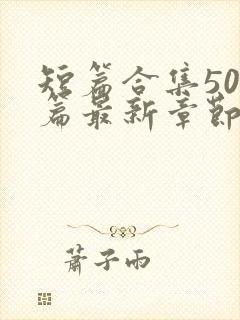 短篇合集50
篇最新章節
蕭子雨